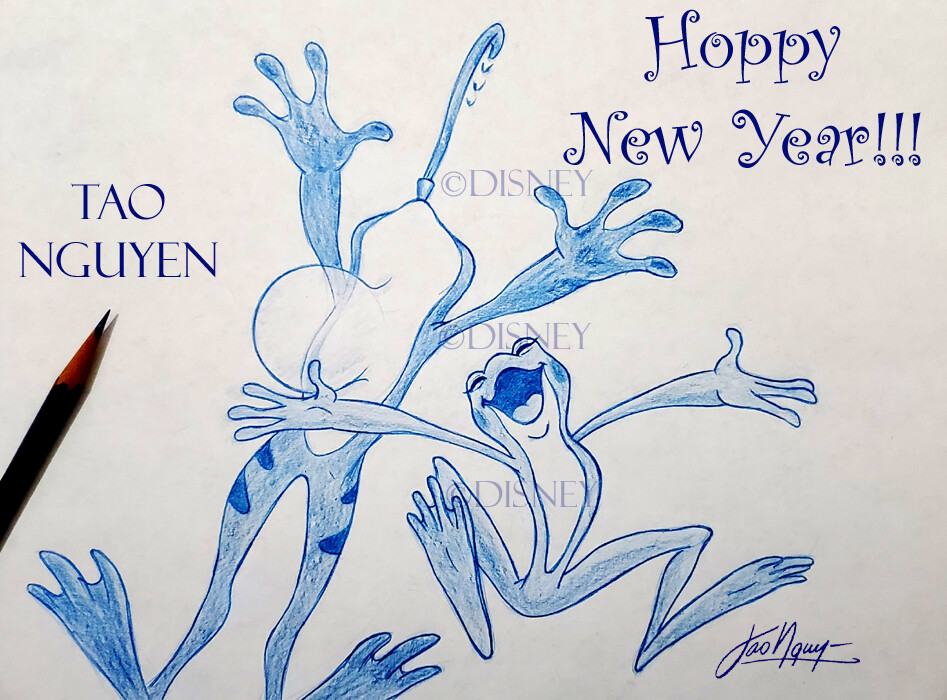 Hoppy
New Year!!!
©DISNEY
TAO
NGUYEN
©DISNEY
©DISNEY
Tao Nguy